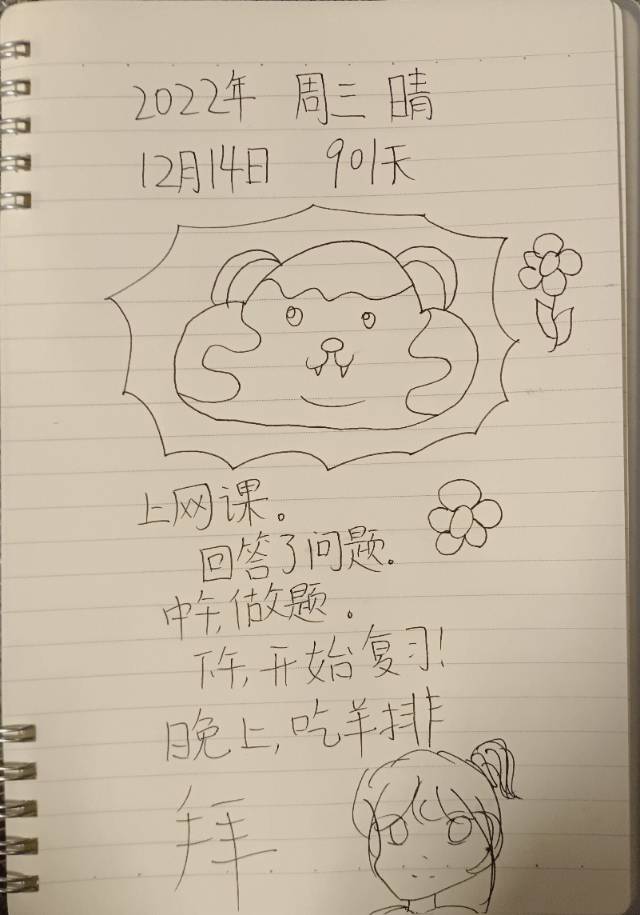 2022年 周三 晴
12月14日 901天
上网课。
回答了问题。
中午,做题。
下午,开始复习!
晚上,吃羊排
拜